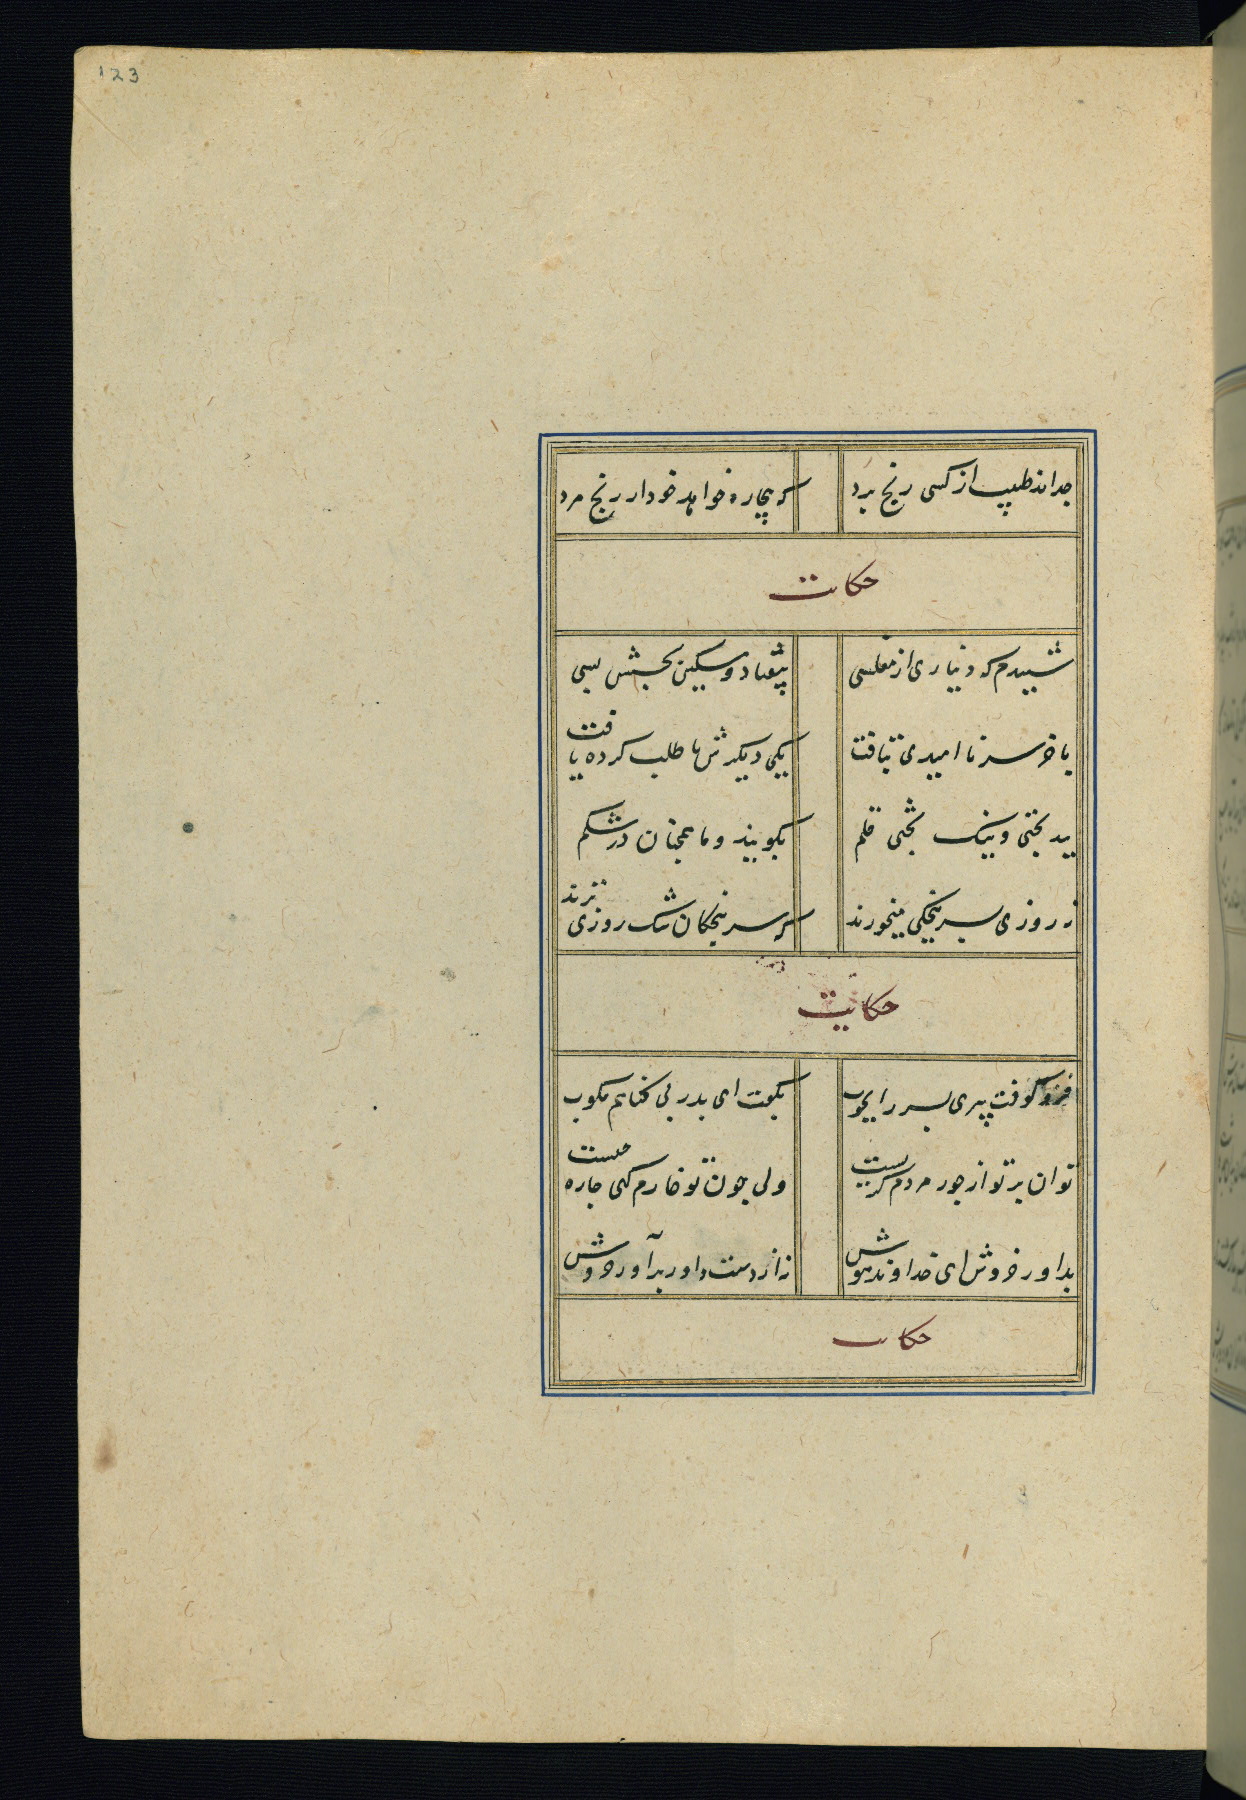 123
چه داند طبیب از کسی رنج برد
که بیچاره خواهد خود از رنج مرد
حکایت
شنیدم که دیناری از مفلسی
بیفتاد و مسکین بجستش بسی
بآخر سر ناامیدی بتافت
یکی دیگرش ناطلب کرده یافت
ببدبختی و نیک بختی قلم
بگوید و ما همچنان در شکم
نه روزی بسرپنجگی میخورند
که سرپنجگان تنک روزی ترند
حکایت
فرو کوفت پیری پسر را بچوب
بگفت ای پدر بی گناهم مکوب
توان بر تو از جور مردم گریست
ولی چون تو خارم کنی چاره چیست
بداور خروش ای خداوند هوش
نه از دست داور برآور خروش
حکایت